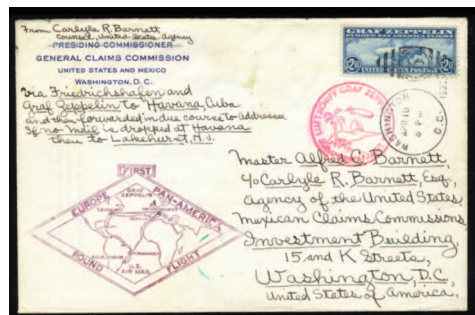 From Carlyle R. Barnett
Counsel, United States, Agency
PRESIDING COMMISSIONER
GENERAL CLAIMS COMMISSION
UNITED STATES AND MEXICO
WASHINGTON, D.C.
Via Friedrichshafen and
Graf Zeppelin to Havana, Cuba
and then forwarded in due course to addressee
If no mail is dropped at Havana
then to Lakehurst, N.J.
GRAF ZEPPELIN
EUROPE PAN-AMERICA FLIGHT
UNITED STATES POSTAGE
LUFTSCHIFF GRAF ZEPPELIN
WASHINGTON
D.C.
FIRST
EUROPE PAN-AMERICA
GRAF
ZEPPELIN
U.S.
AIR MAIL
ROUND FLIGHT
Master Alfred C. Barnett,
c/o Carlyle R. Barnett, Esq.,
Agency of the United States,
Mexican Claims Commissions,
Investment Building,
15 and K Streets,
Washington, D.C,
United States of America.